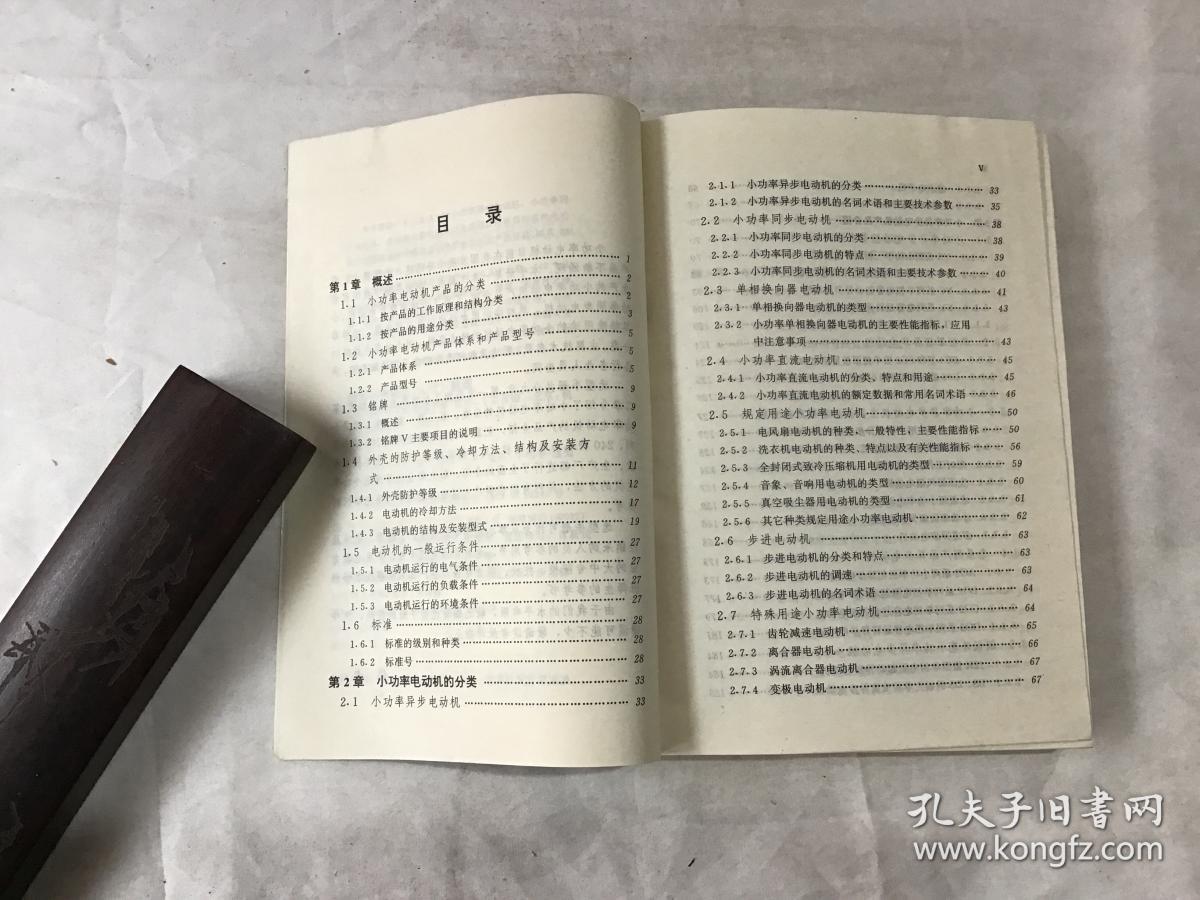 目 录
第1章 概述……1
1.1 小功率电动机产品的分类……2
1.1.1 按产品的工作原理和结构分类……2
1.1.2 按产品的用途分类……3
1.2 小功率电动机产品体系和产品型号……5
1.2.1 产品体系……5
1.2.2 产品型号……5
1.3 铭牌……9
1.3.1 概述……9
1.3.2 铭牌V主要项目的说明……9
1.4 外壳的防护等级、冷却方法、结构及安装方
式……11
1.4.1 外壳防护等级……12
1.4.2 电动机的冷却方法……17
1.4.3 电动机的结构及安装型式……19
1.5 电动机的一般运行条件……27
1.5.1 电动机运行的电气条件……27
1.5.2 电动机运行的负载条件……27
1.5.3 电动机运行的环境条件……27
1.6 标准……28
1.6.1 标准的级别和种类……28
1.6.2 标准号……28
第2章 小功率电动机的分类……33
2.1 小功率异步电动机……33
V
2.1.1 小功率异步电动机的分类……33
2.1.2 小功率异步电动机的名词术语和主要技术参数……35
2.2 小功率同步电动机……38
2.2.1 小功率同步电动机的分类……38
2.2.2 小功率同步电动机的特点……39
2.2.3 小功率同步电动机的名词术语和主要技术参数……40
2.3 单相换向器电动机……41
2.3.1 单相换向器电动机的类型……43
2.3.2 小功率单相换向器电动机的主要性能指标，应用
中注意事项……43
2.4 小功率直流电动机……45
2.4.1 小功率直流电动机的分类、特点和用途……45
2.4.2 小功率直流电动机的额定数据和常用名词术语……46
2.5 规定用途小功率电动机……50
2.5.1 电风扇电动机的种类、一般特性，主要性能指标……50
2.5.2 洗衣机电动机的种类、特点以及有关性能指标……56
2.5.3 全封闭式致冷压缩机用电动机的类型……59
2.5.4 音象、音响用电动机的类型……60
2.5.5 真空吸尘器用电动机的类型……61
2.5.6 其它种类规定用途小功率电动机……62
2.6 步进电动机……63
2.6.1 步进电动机的分类和特点……63
2.6.2 步进电动机的调速……63
2.6.3 步进电动机的名词术语……64
2.7 特殊用途小功率电动机……64
2.7.1 齿轮减速电动机……65
2.7.2 离合器电动机……66
2.7.3 涡流离合器电动机……67
2.7.4 变极电动机……67
孔夫子旧书网
www.kongfz.com